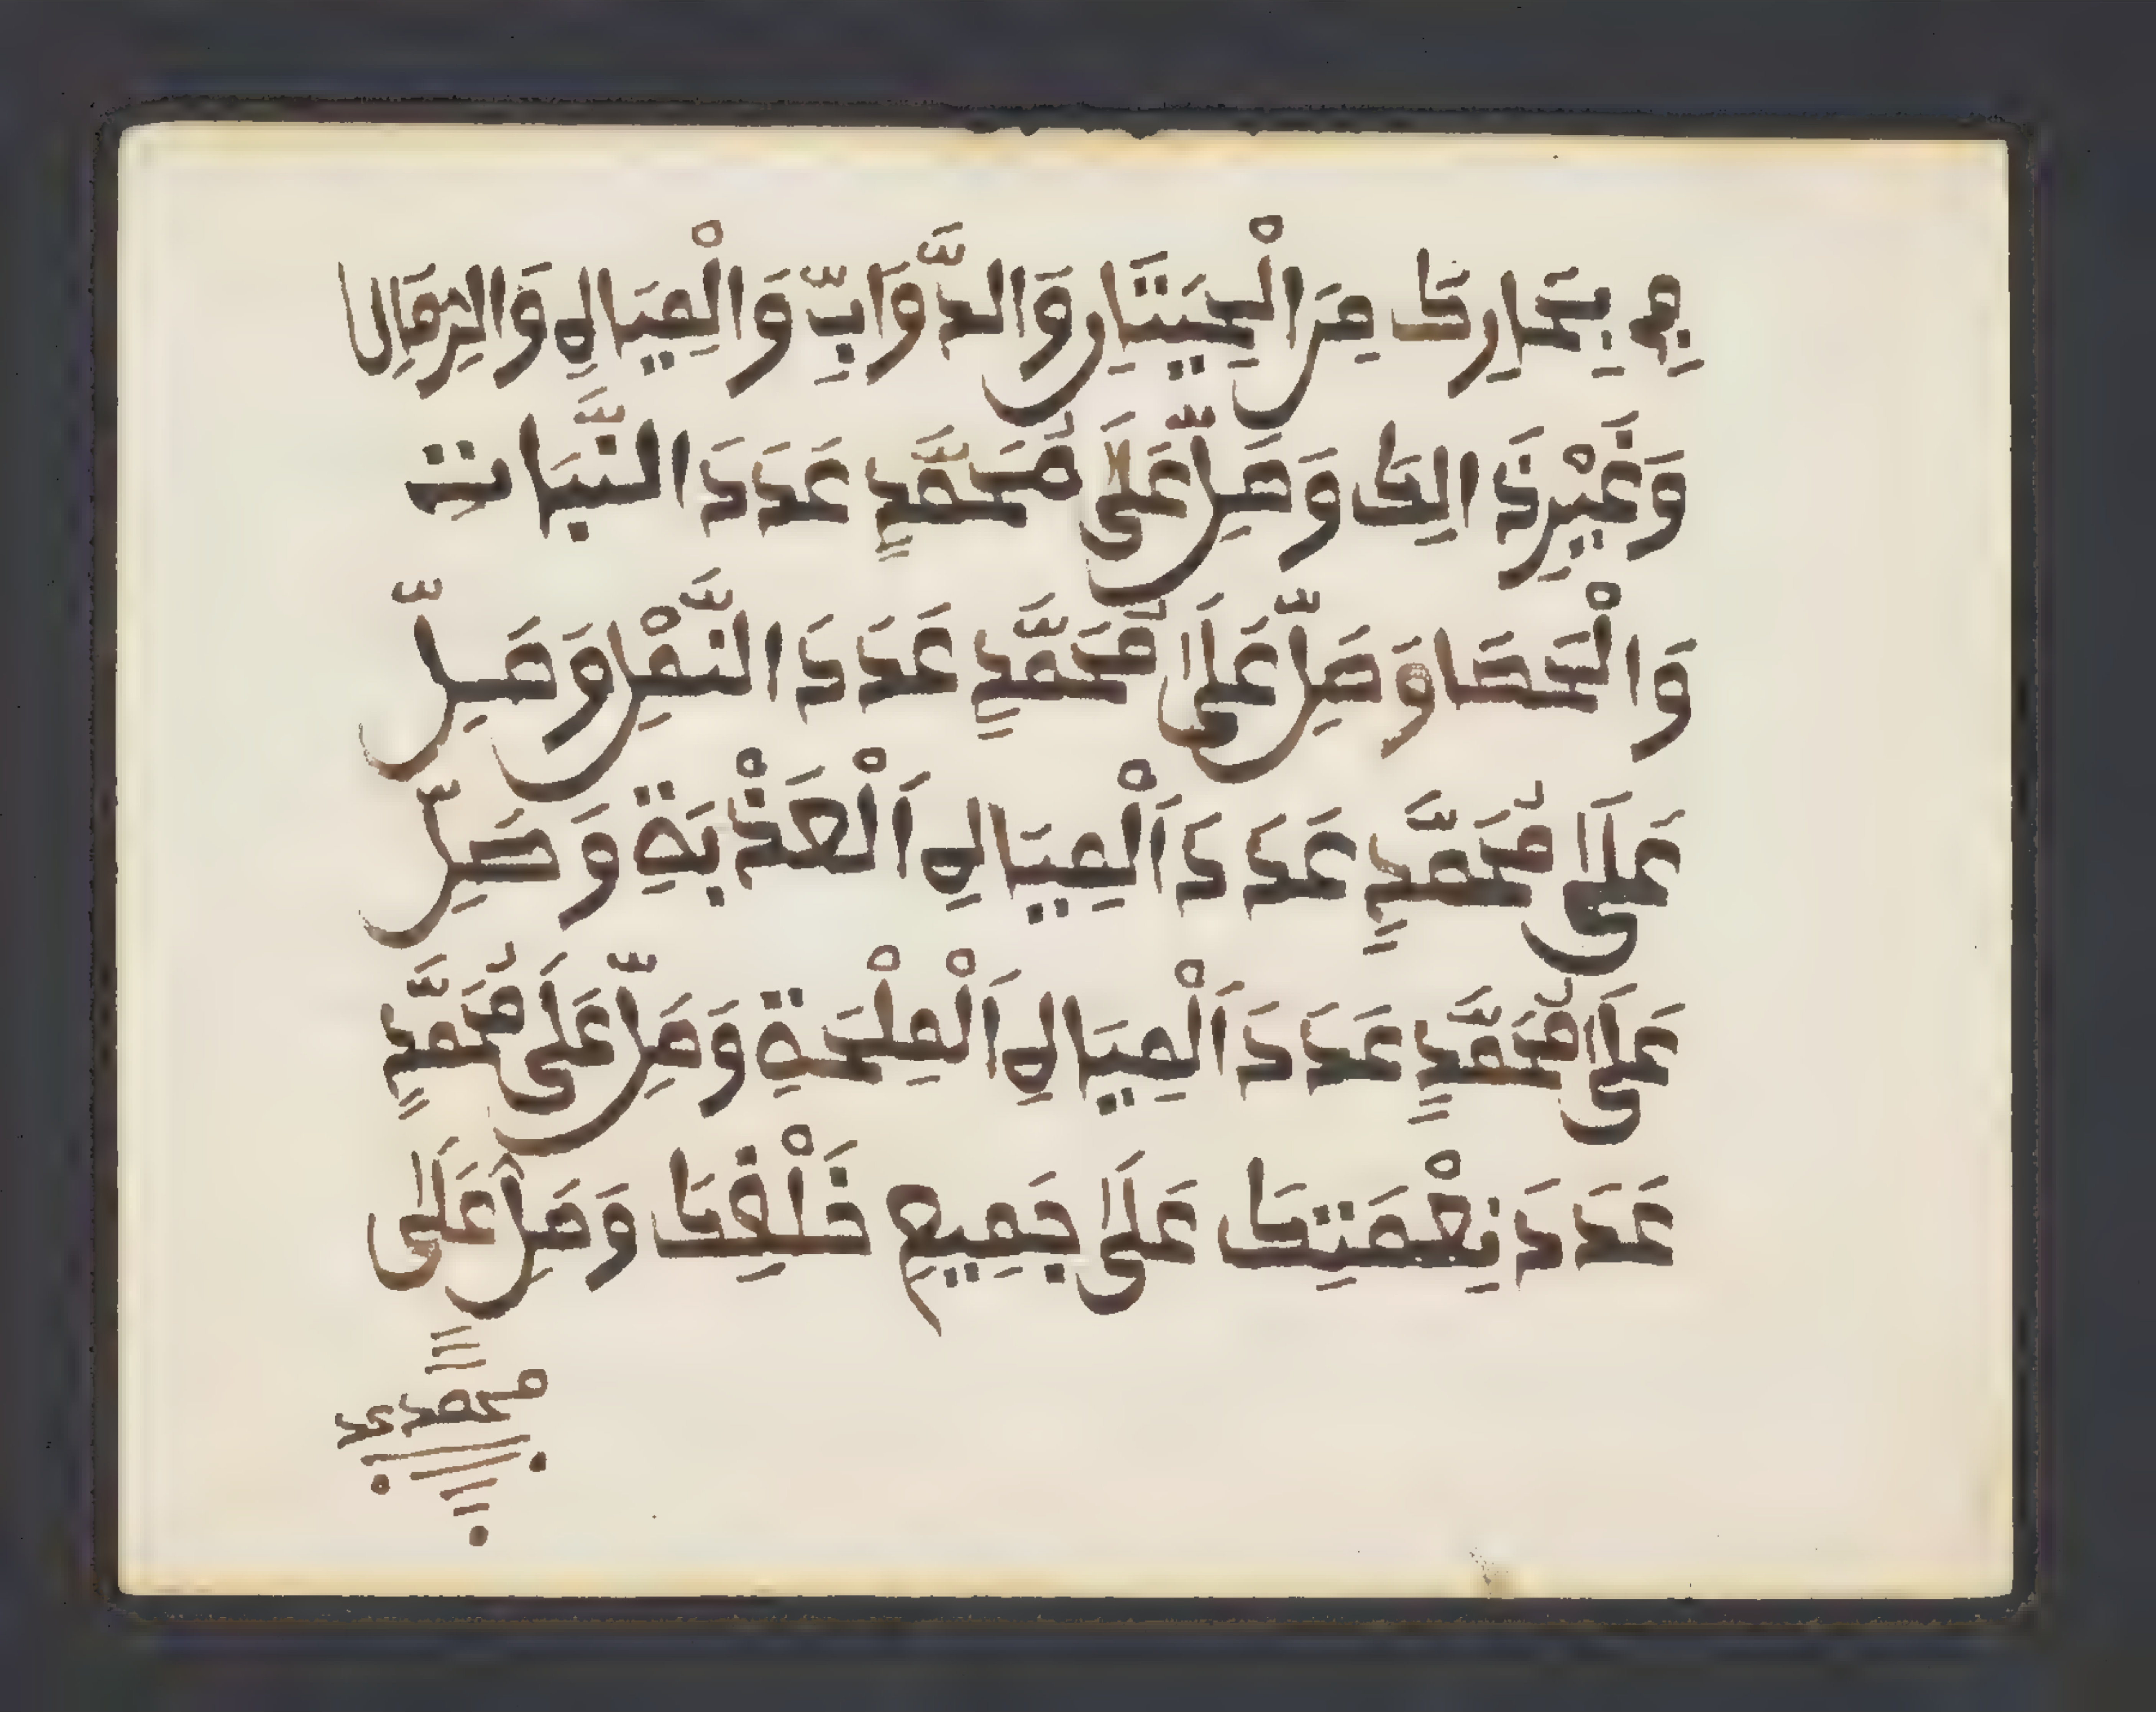 فِي بِحَارِكَ مِنَ الْحِيَتَانِ وَالدَّوَآبِّ وَالْمِيَاهِ وَالرِّمَالِ
وَغَيْرِ ذَالِكَ وَصَلِّ عَلَى مُحَمَّدٍ عَدَدَ النَّبَاتِ
وَالْحَصَا وَصَلِّ عَلَى مُحَمَّدٍ عَدَدَ النَّمْلِ وَصَلِّ
عَلَى مُحَمَّدٍ عَدَدَ اَلْمِيَاهِ اَلْعَذْبَةِ وَصَلِّ
عَلَى مُحَمَّدٍ عَدَدَ اَلْمِيَاهِ اَلْمِلْحَةِ وَصَلِّ عَلَى مُحَمَّدٍ
عَدَدَ نِعْمَتِكَ عَلَى جَمِيعِ خَلْقِكَ وَصَلِّ عَلَى
محمد عد